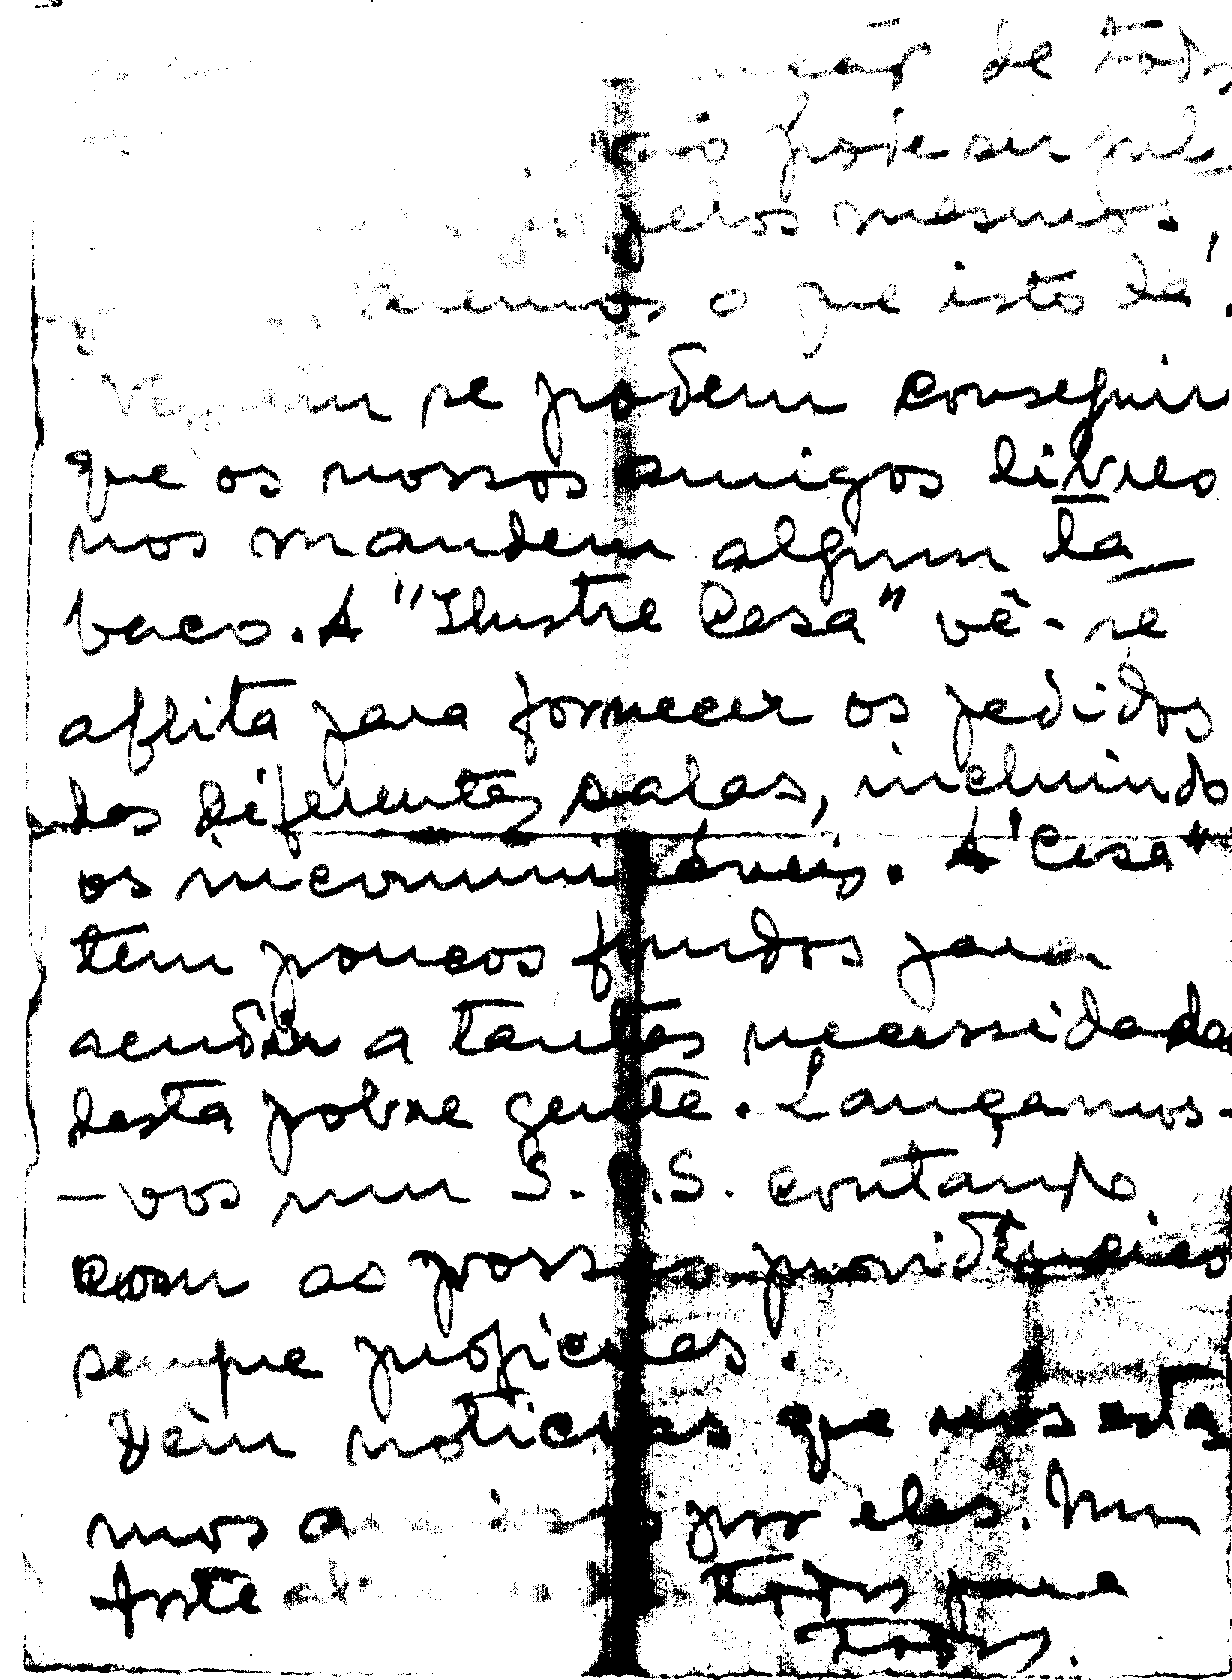 de todos
não pode ser
pelos mesmos,
Veremos o que isto dá.
Vejam se podem conseguir
que os nossos amigos livres
nos mandem algum ta-
baco. A "Ilustre Casa" vê-se
aflita para fornecer os pedidos
das diferentes salas, incluindo
os incomunicáveis. A "Casa"
tem poucos fundos para
acudir a tantas necessidades
desta pobre gente. Lançamos-
-vos num S.O.S. contando
com as vossas providências
sempre profícuas.
Dêm noticias que nós esta
mos ansiosos por elas. Um
forte abraço de todos para
todos.